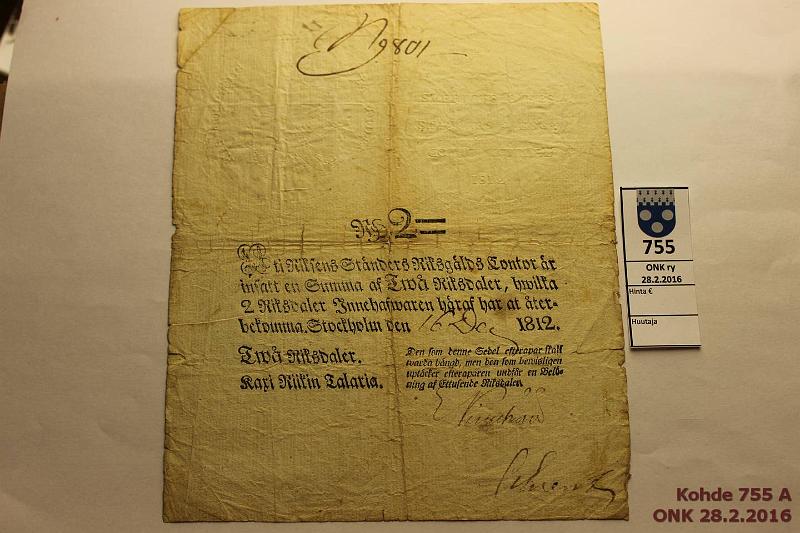 N 9801
RD. 2=
Uti Riksens Ständers Riksgälds Contor är
insatt en Summa af Twå Riksdaler, hwilka
2 Riksdaler Innehafwaren häraf har at åter-
bekomma. Stockholm den 16 Dec 1812.
Twå Riksdaler.
Kaxi Riikin Talaria.
Den som denne Sedel efterapar skall
warda hängd, men den som bewisligen
uptäcker efteraparen undfår en Belö-
ning af Ettusende Riksdaler.
755
ONK ry
28.2.2016
Hinta €
Huutaja
Kohde 755 A
ONK 28.2.2016